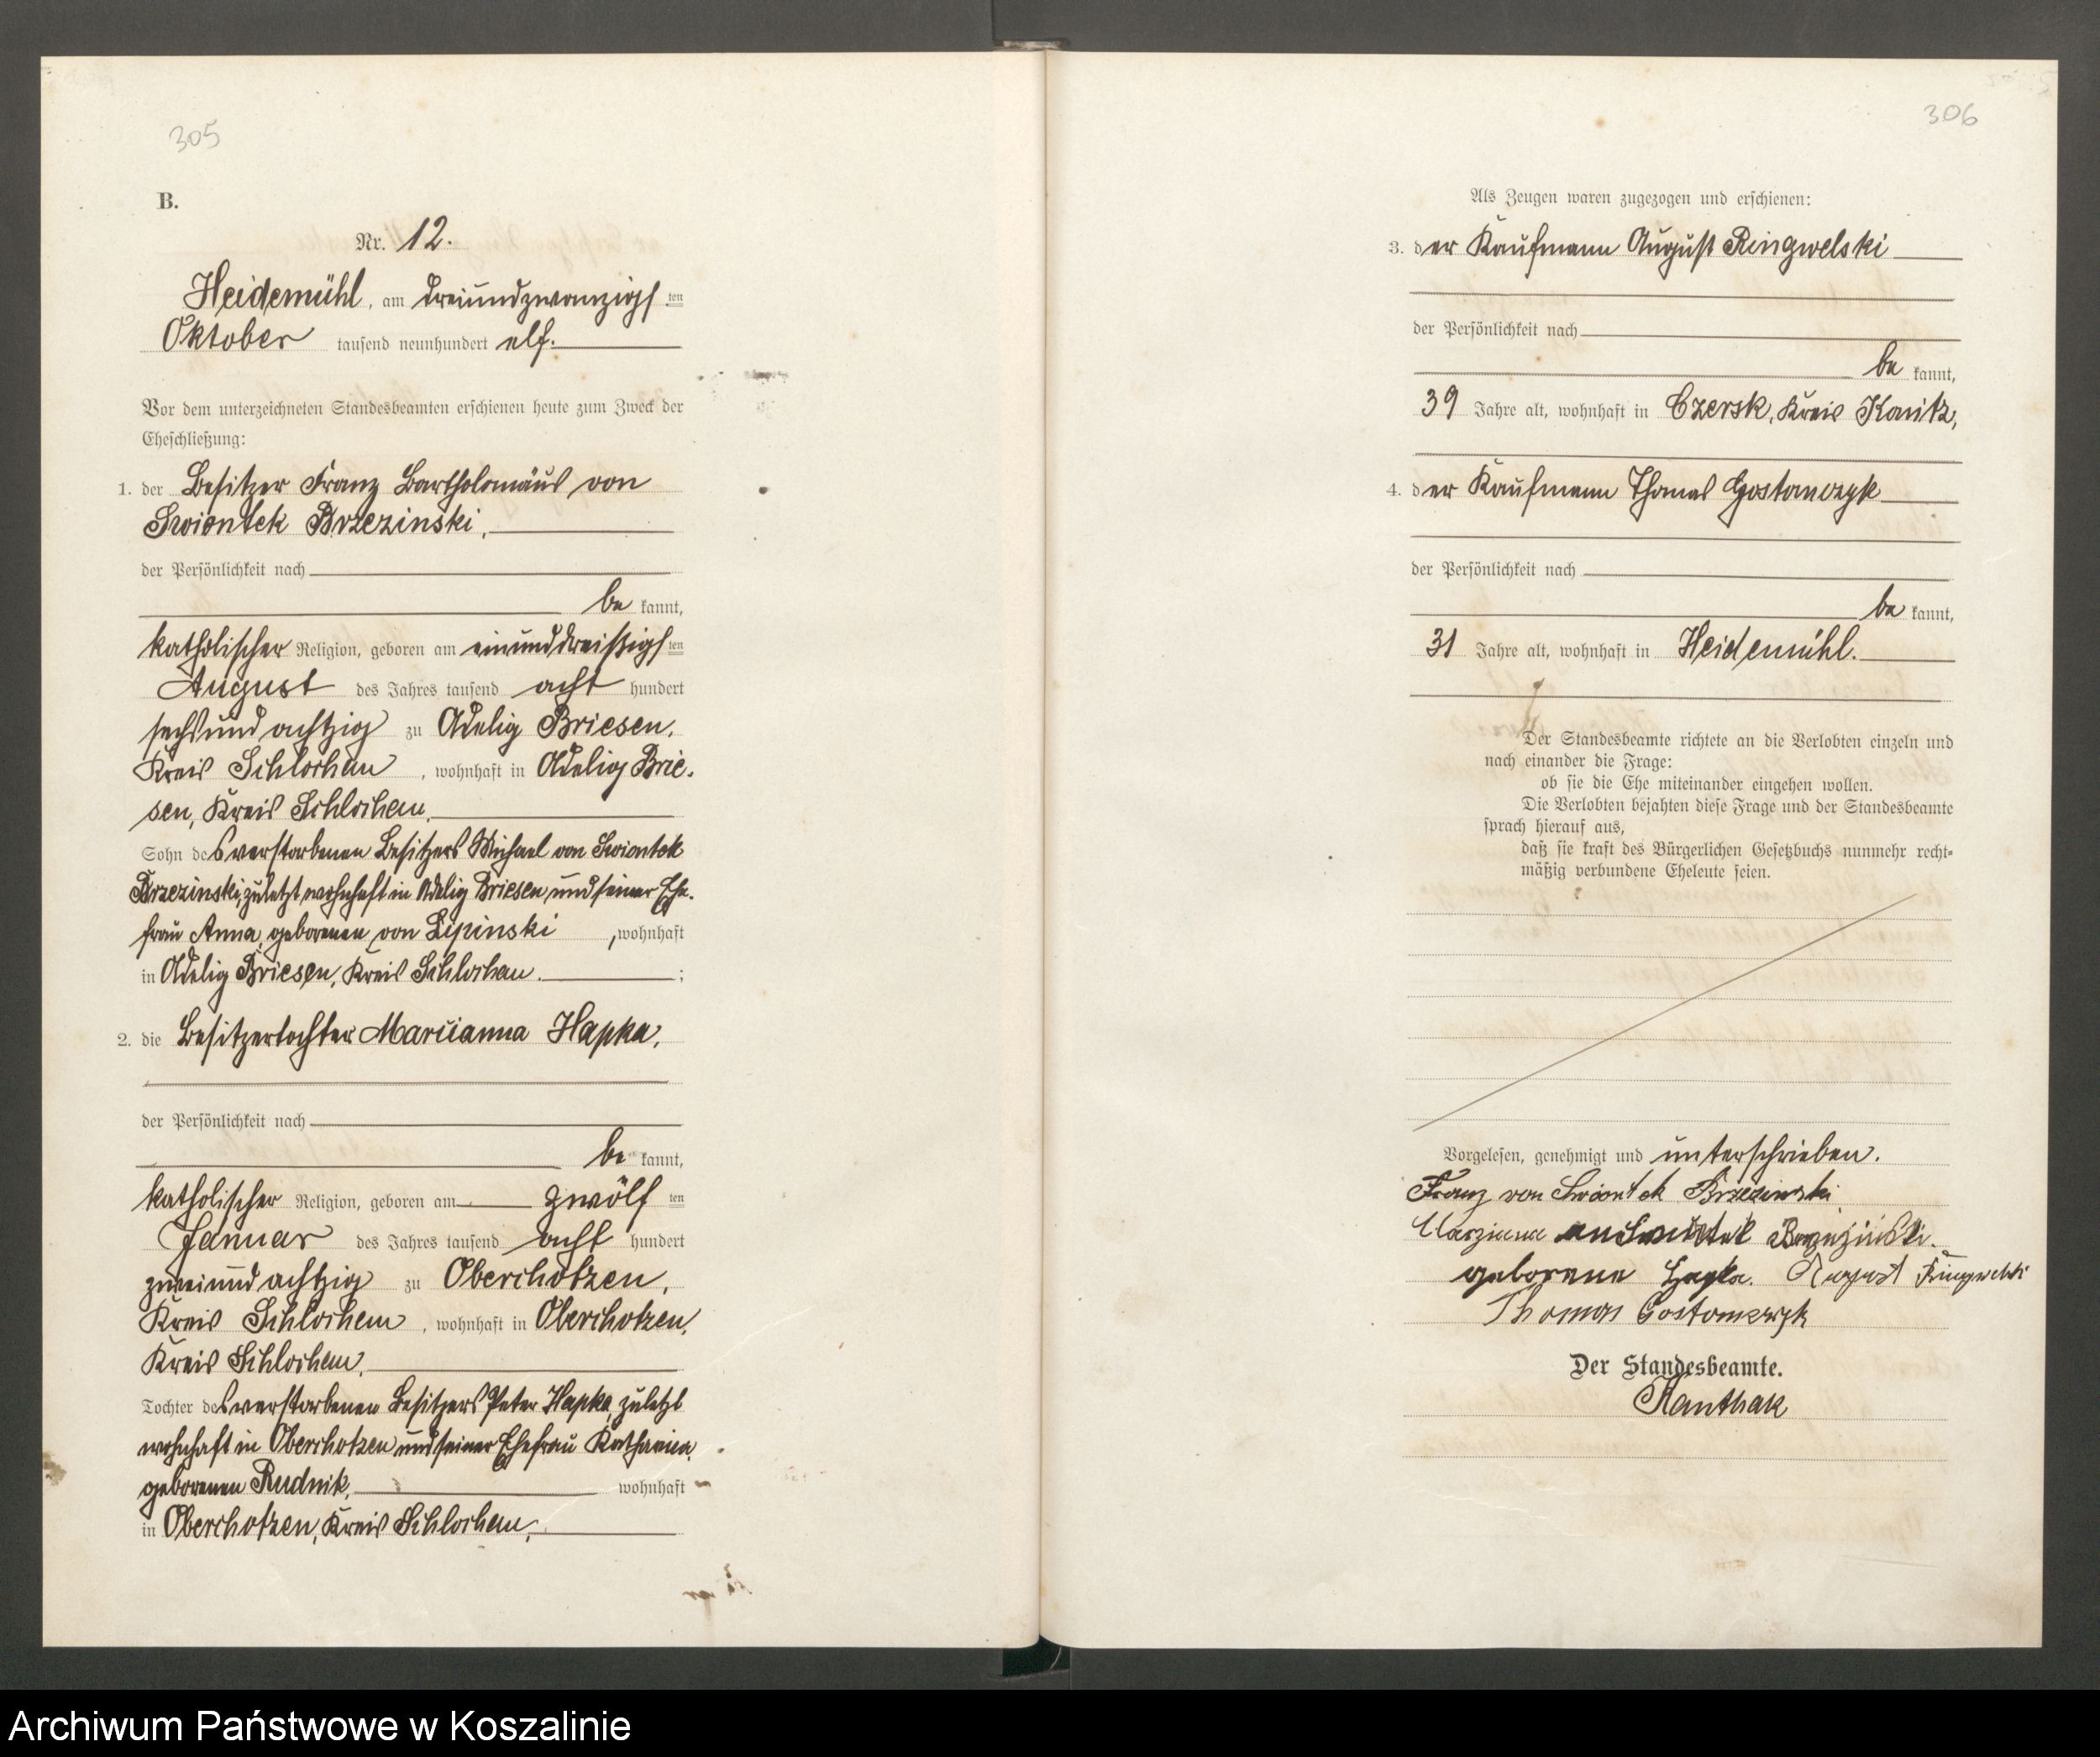 305
B.
Nr. 12.
Heidemühl, am dreiundzwanzigsten
Oktober tausend neunhundert elf.
Vor dem unterzeichneten Standesbeamten erschienen heute zum Zweck der
Eheschließung:
1. der Besitzer Franz Bartholomäus von
Swiontek Brzezinski,
der Persönlichkeit nach
bekannt,
katholischer Religion, geboren am einunddreißigsten
August des Jahres tausend achthundert
sechsundachtzig zu Adelig Briesen,
Kreis Schlochau, wohnhaft in Adelig Brie-
sen, Kreis Schlochau,
Sohn des verstorbenen Besitzers Michael von Swiontek
Brzezinski, zuletzt wohnhaft in Adelig Briesen und seiner Ehe-
frau Anna, geborenen von Lipinski, wohnhaft
in Adelig Briesen, Kreis Schlochau.;
2. die Besitzertochter Marianna Hapka,
der Persönlichkeit nach
bekannt,
katholischer Religion, geboren am zwölften
Januar des Jahres tausend achthundert
zweiundachtzig zu Oberchotzen,
Kreis Schlochau, wohnhaft in Oberchotzen,
Kreis Schlochau,
Tochter des verstorbenen Besitzers Peter Hapka, zuletzt
wohnhaft in Oberchotzen und seiner Ehefrau Katharina,
geborenen Rudnik, wohnhaft
in Oberchotzen, Kreis Schlochau.
306
Als Zeugen waren zugezogen und erschienen:
3. der Kaufmann August Ringwelski
der Persönlichkeit nach
bekannt,
39 Jahre alt, wohnhaft in Czersk, Kreis Konitz,
4. der Kaufmann Thomas Gostomczyk
der Persönlichkeit nach
bekannt,
31 Jahre alt, wohnhaft in Heidemühl.
Der Standesbeamte richtete an die Verlobten einzeln und
nach einander die Frage:
ob sie die Ehe miteinander eingehen wollen.
Die Verlobten bejahten diese Frage und der Standesbeamte
sprach hierauf aus,
daß sie kraft des Bürgerlichen Gesetzbuchs nunmehr recht-
mäßig verbundene Eheleute seien.
Vorgelesen, genehmigt und unterschrieben.
Franz von Swiontek Brzezinski
geborene Hapka. August Ringwelski
Thomas Gostomczyk
Der Standesbeamte.
Kanthak
Archiwum Państwowe w Koszalinie